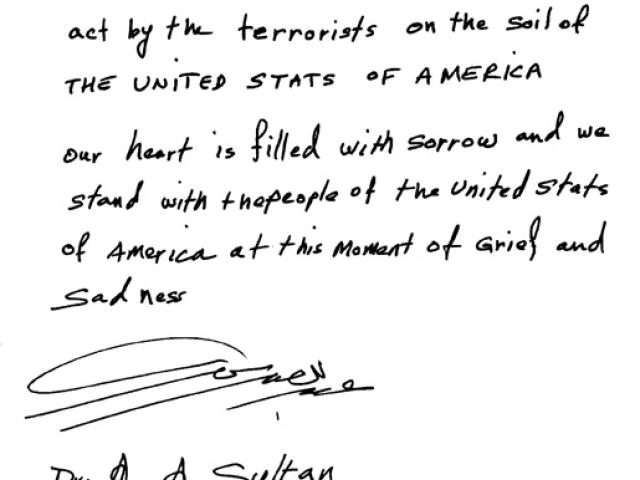 act by the terrorists on the soil of
THE UNITED STATS OF AMERICA
our heart is filled with sorrow and we
stand with thepeople of the United Stats
of America at this Moment of Grief and
Sadness
Dr. A A Sultan